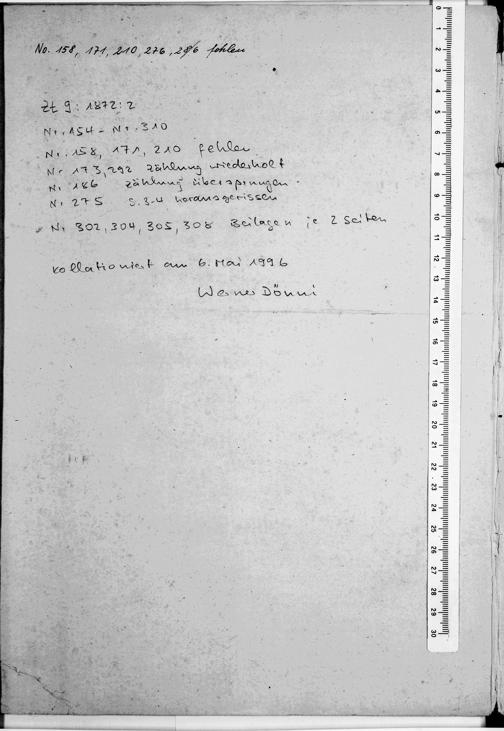 No. 158, 171, 210, 276, 296 fehlen
Zt 9 : 1872 : 2
Nr. 154 - Nr. 310
Nr. 158, 171, 210 fehlen
Nr 173, 292 Zählung wiederholt
Nr 186 Zählung übersprungen.
Nr 275 S. 3-4 herausgerissen
Nr 302, 304, 305, 308 Beilagen je 2 Seiten
kollationiert am 6. Mai 1996
Werner Dönni
0 1 2 3 4 5 6 7 8 9 10 11 12 13 14 15 16 17 18 19 20 21 22 23 24 25 26 27 28 29 30